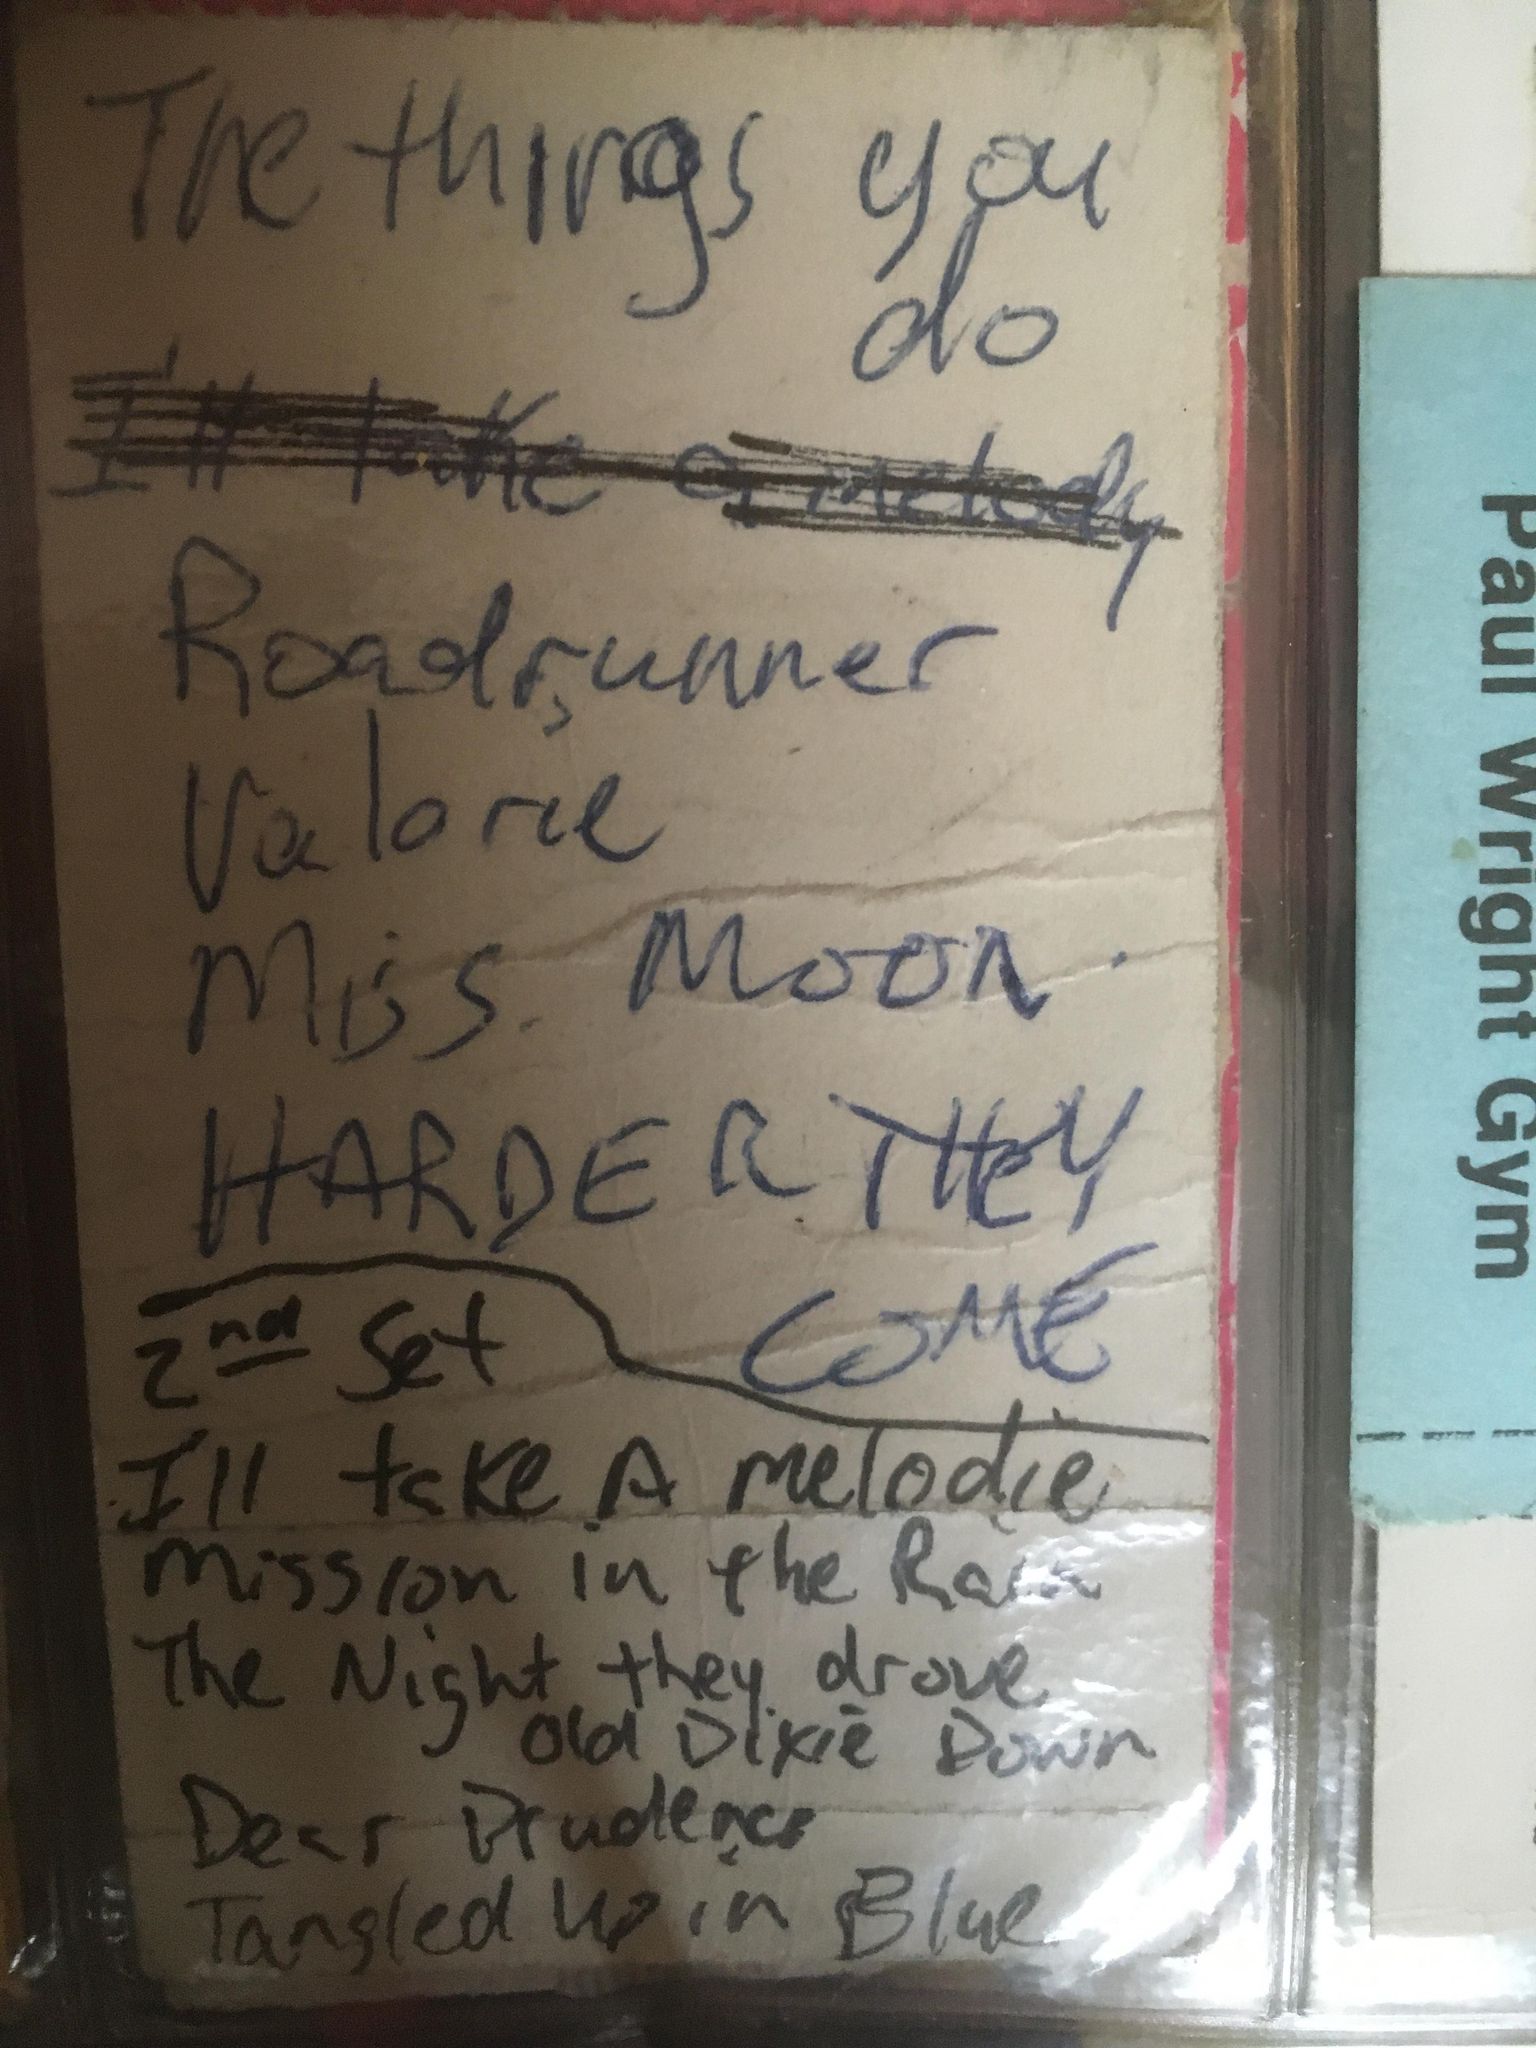 The things you
do
I'll take a melody
Roadrunner
Valorie
Miss. Moon.
HARDER THEY
COME
2nd Set
I'll take A melodie
Mission in the Rain
The Night they drove
Old Dixie Down
Dear Prudence
Tangled Up in Blue
Paul Wright Gym